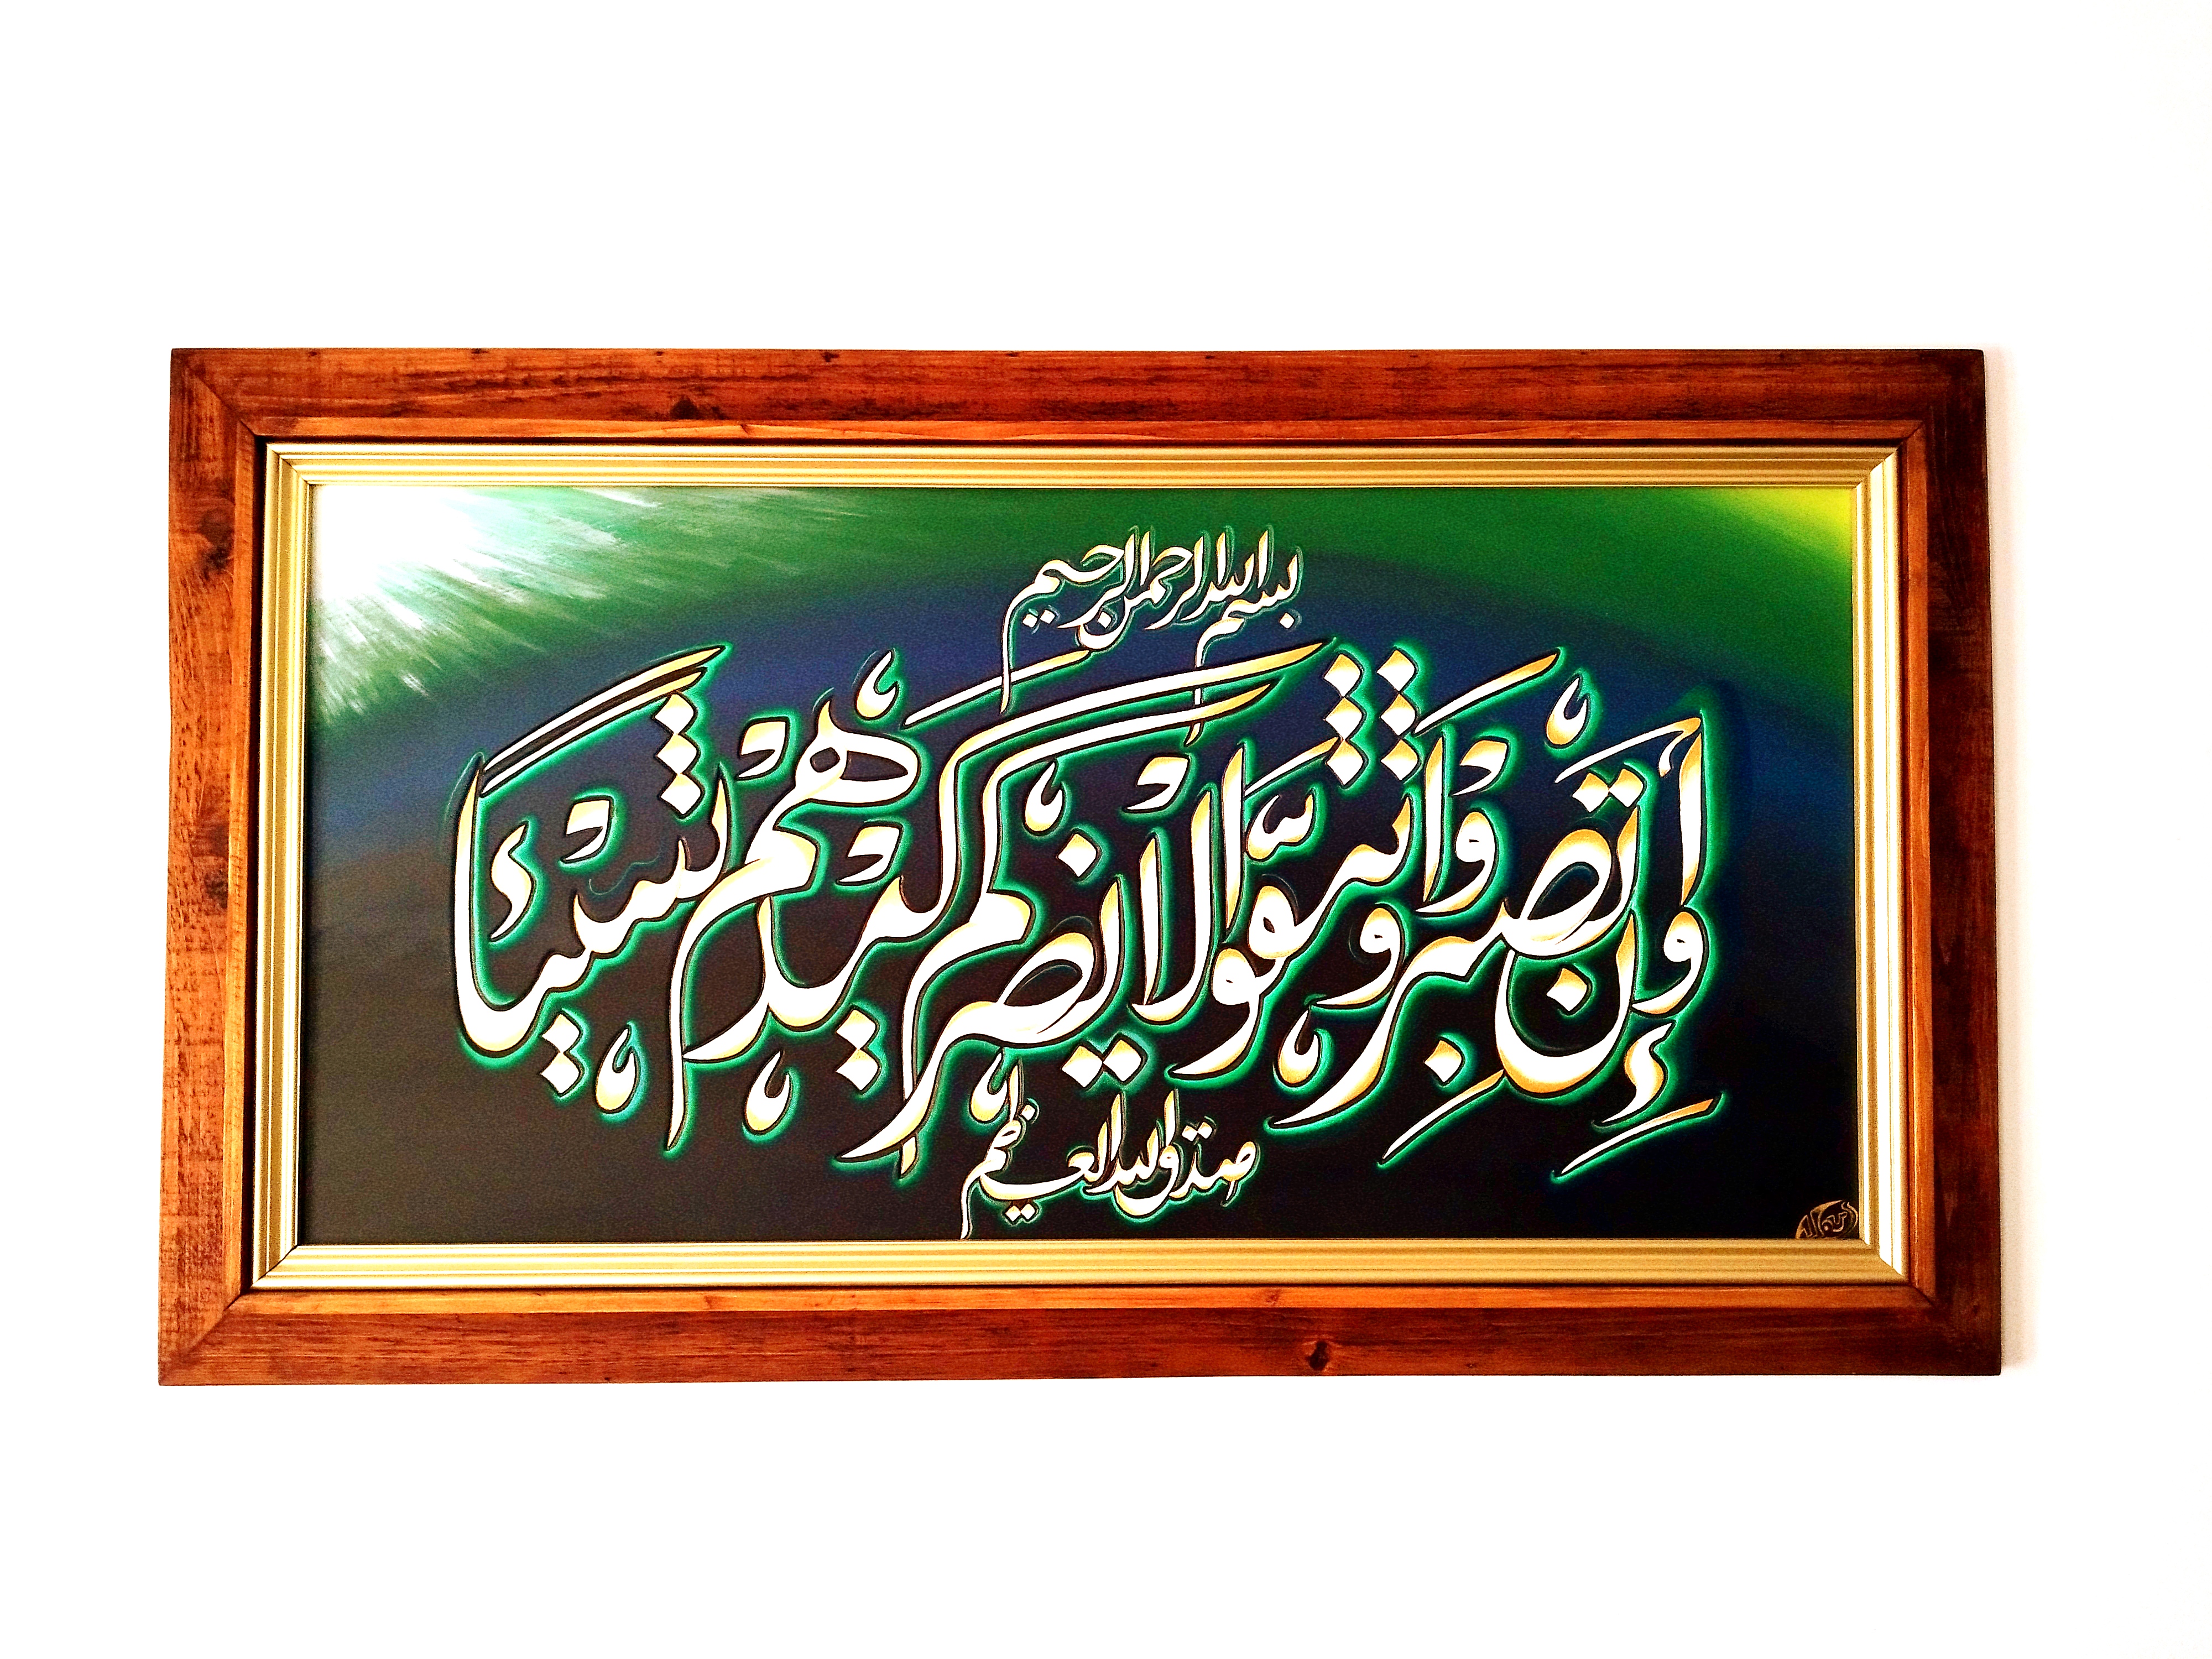 بسم الله الرحمن الرحيم
وَإِنْ تَصْبِرُوا وَتَتَّقُوا لَا يَضُرُّكُمْ كَيْدُهُمْ شَيْئًا
صدق الله العظيم